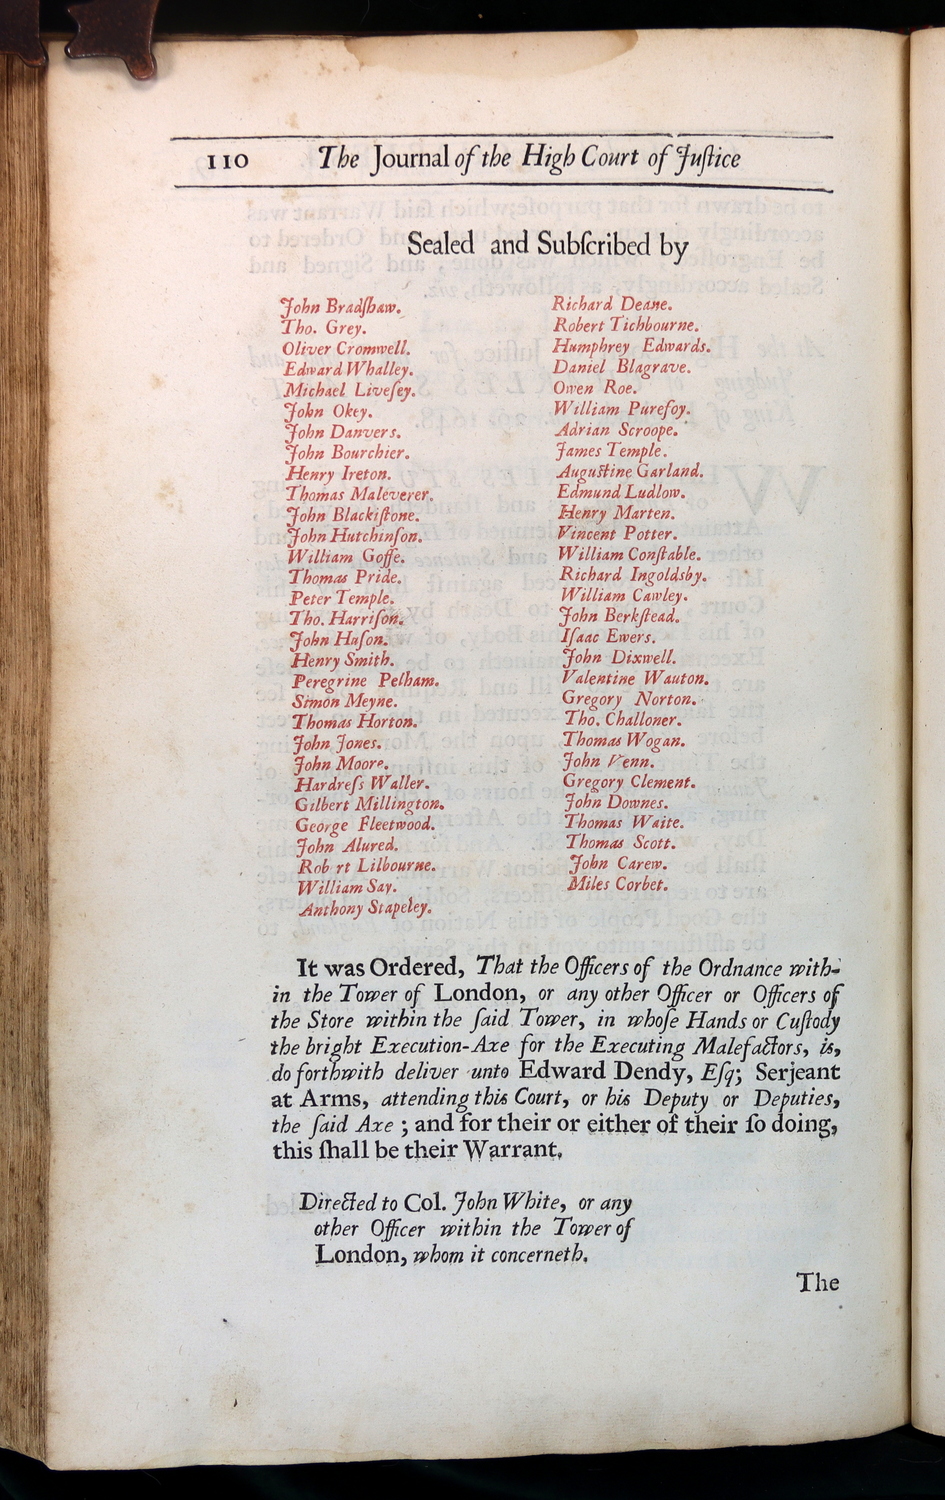 110 The Journal of the High Court of Juſtice
Sealed and Subſcribed by
John Bradſhaw.
Tho. Grey.
Oliver Cromwell.
Edward Whalley.
Michael Liveſey.
John Okey.
John Danvers.
John Bourchier.
Henry Ireton.
Thomas Maleverer.
John Blackiſtone.
John Hutchinſon.
William Goffe.
Thomas Pride.
Peter Temple.
Tho. Harriſon.
John Huſon.
Henry Smith.
Peregrine Pelham.
Simon Meyne.
Thomas Horton.
John Jones.
John Moore.
Hardreſs Waller.
Gilbert Millington.
George Fleetwood.
John Alured.
Rob rt Lilbourne.
William Say.
Anthony Stapeley.
Richard Deane.
Robert Tichbourne.
Humphrey Edwards.
Daniel Blagrave.
Owen Roe.
William Purefoy.
Adrian Scroope.
James Temple.
Auguſtine Garland.
Edmund Ludlow.
Henry Marten.
Vincent Potter.
William Conſtable.
Richard Ingoldsby.
William Cawley.
John Berkſtead.
Iſaac Ewers.
John Dixwell.
Valentine Wauton.
Gregory Norton.
Tho. Challoner.
Thomas Wogan.
John Venn.
Gregory Clement.
John Downes.
Thomas Waite.
Thomas Scott.
John Carew.
Miles Corbet.
It was Ordered, That the Officers of the Ordnance with-
in the Tower of London, or any other Officer or Officers of
the Store within the ſaid Tower, in whoſe Hands or Cuſtody
the bright Execution-Axe for the Executing Malefactors, is,
do forthwith deliver unto Edward Dendy, Eſq; Serjeant
at Arms, attending this Court, or his Deputy or Deputies,
the ſaid Axe ; and for their or either of their ſo doing,
this ſhall be their Warrant.
Directed to Col. John White, or any
other Officer within the Tower of
London, whom it concerneth.
The